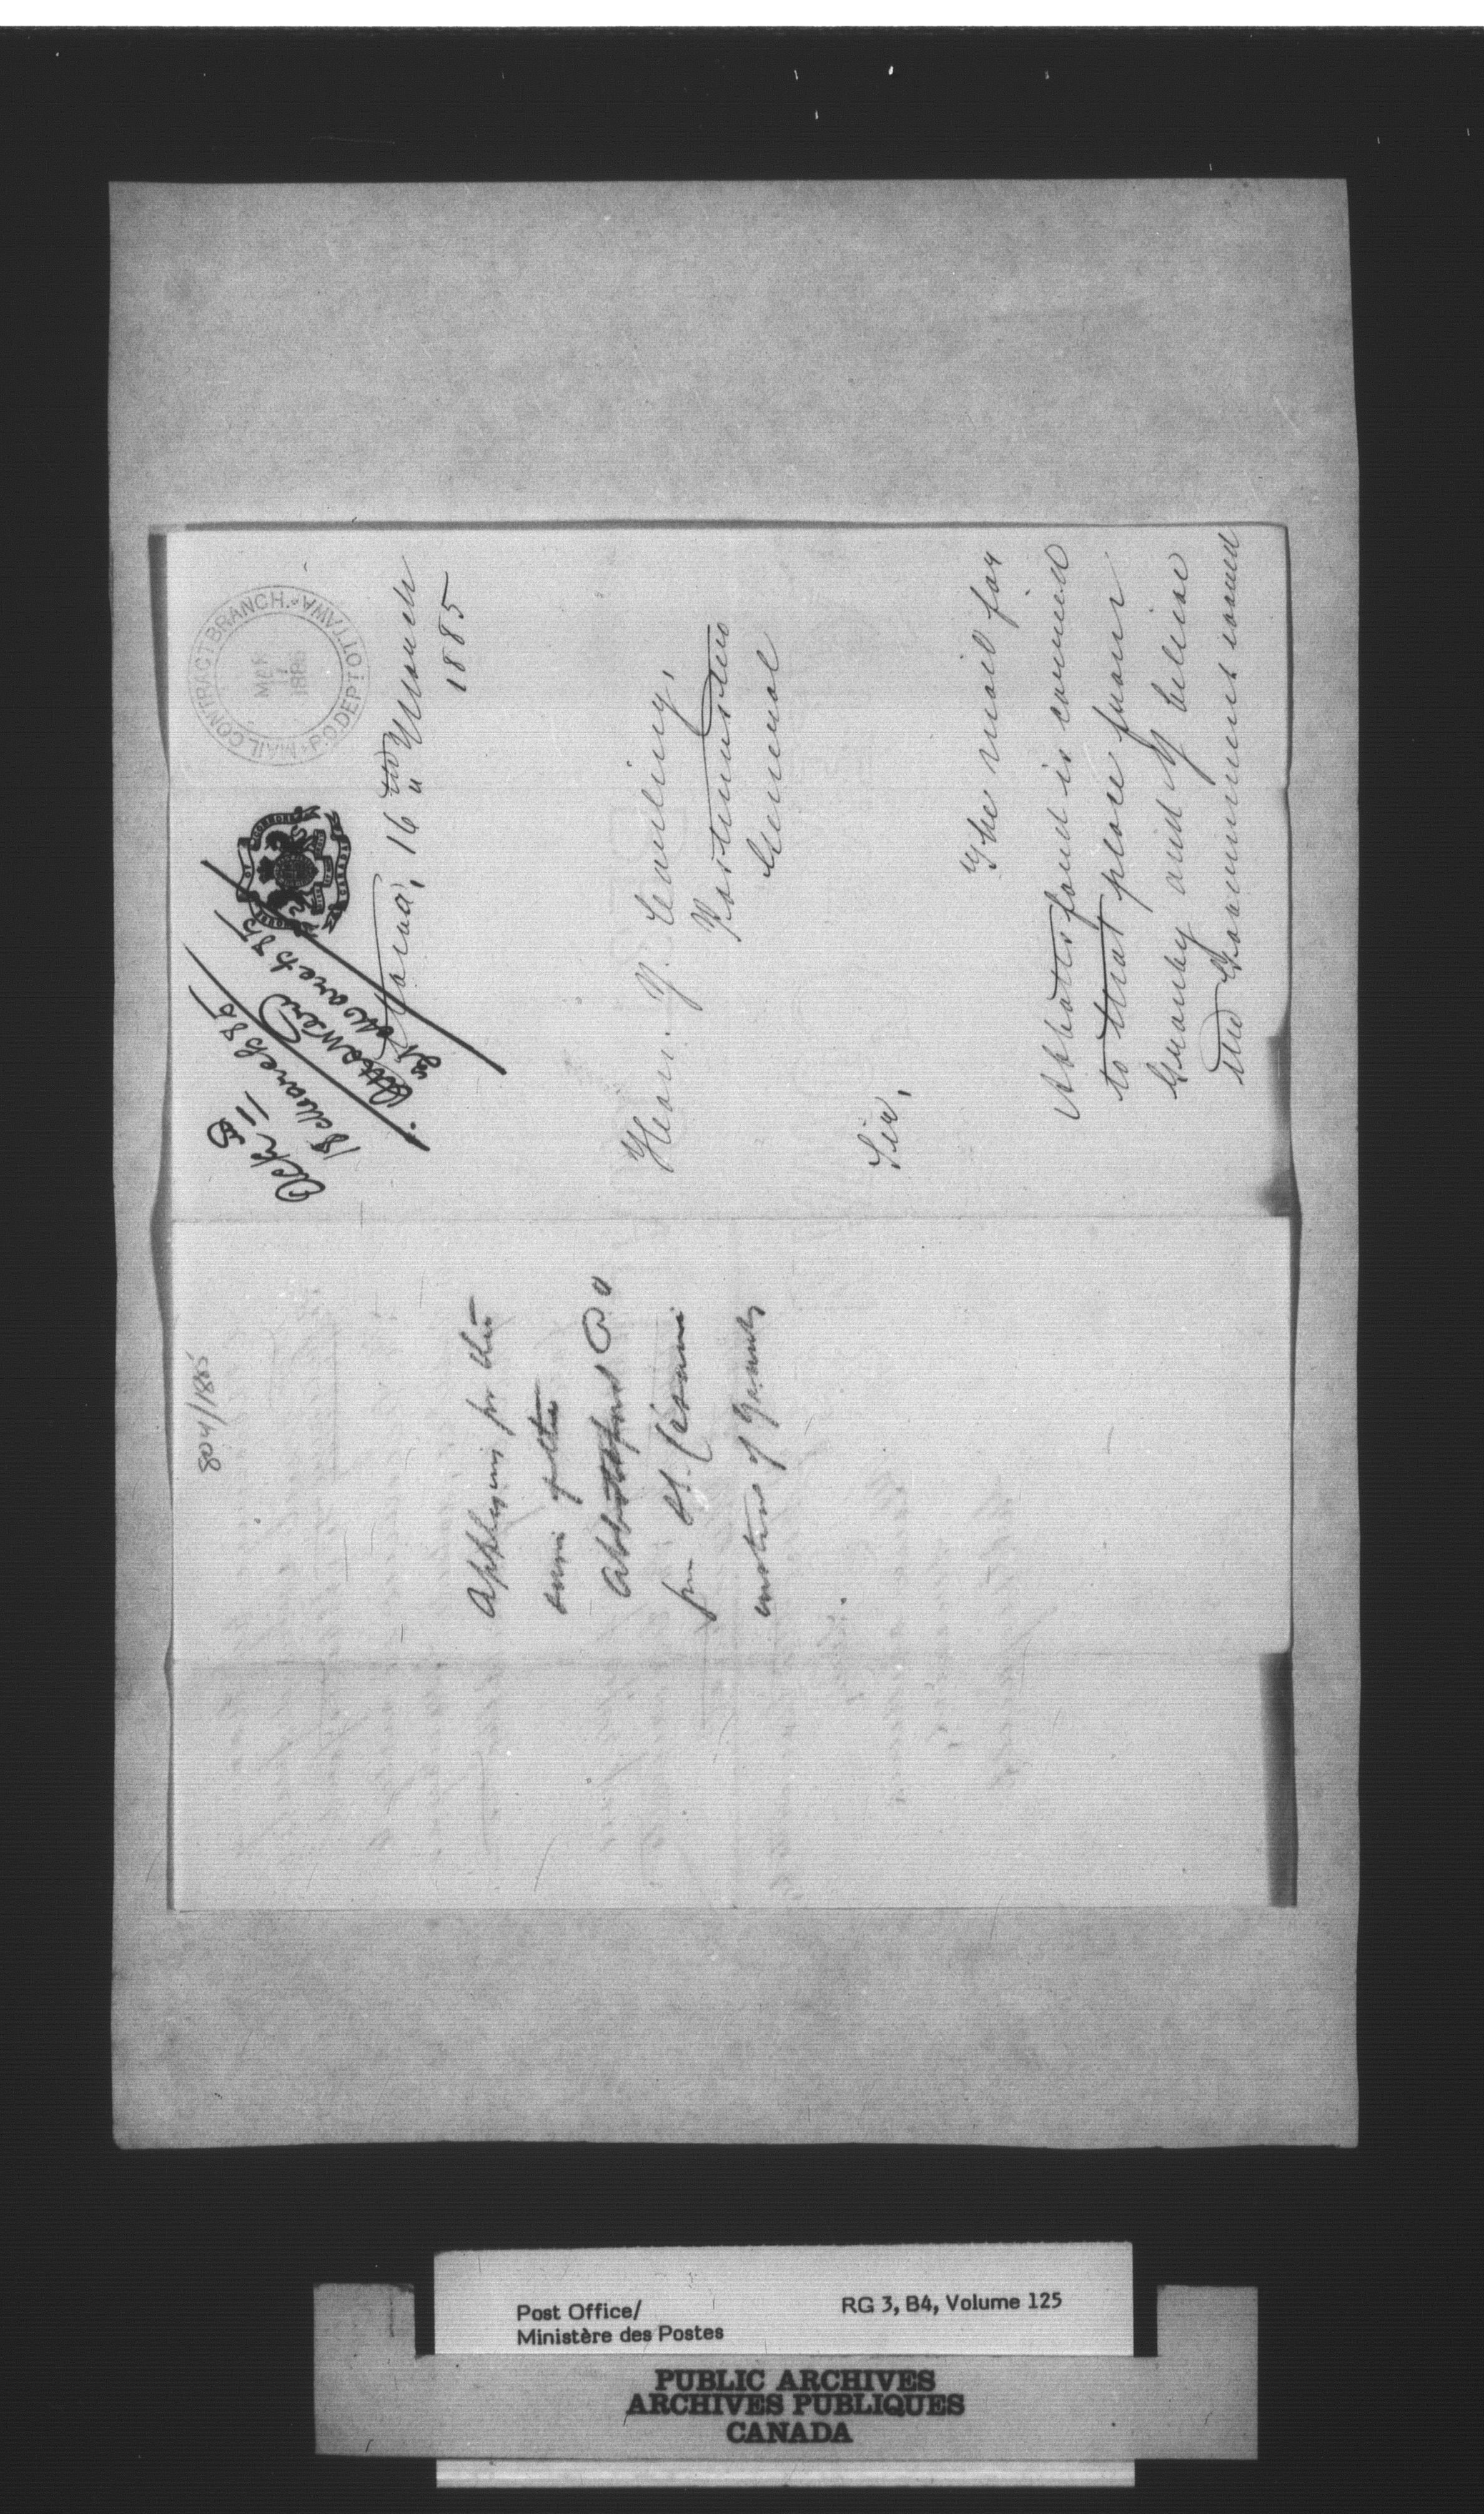 MAIL CONTRACT BRANCH.
P.O. DEPT OTTAWA
MAR
17
1885
Ack
18 March 85
Answered
21 March 85
Ottawa, 16th March
1885
Hon. J. Carling,
Postmaster
General
Sir,
The mail for
Abbottsford is carried
to that place from
Granby and I believe
the Government issued
804/1885
Applying for the
Abbottsford P O
St. Cesaire
instead of Granby
Post Office/
Ministère des Postes
RG 3, B4, Volume 125
PUBLIC ARCHIVES
ARCHIVES PUBLIQUES
CANADA